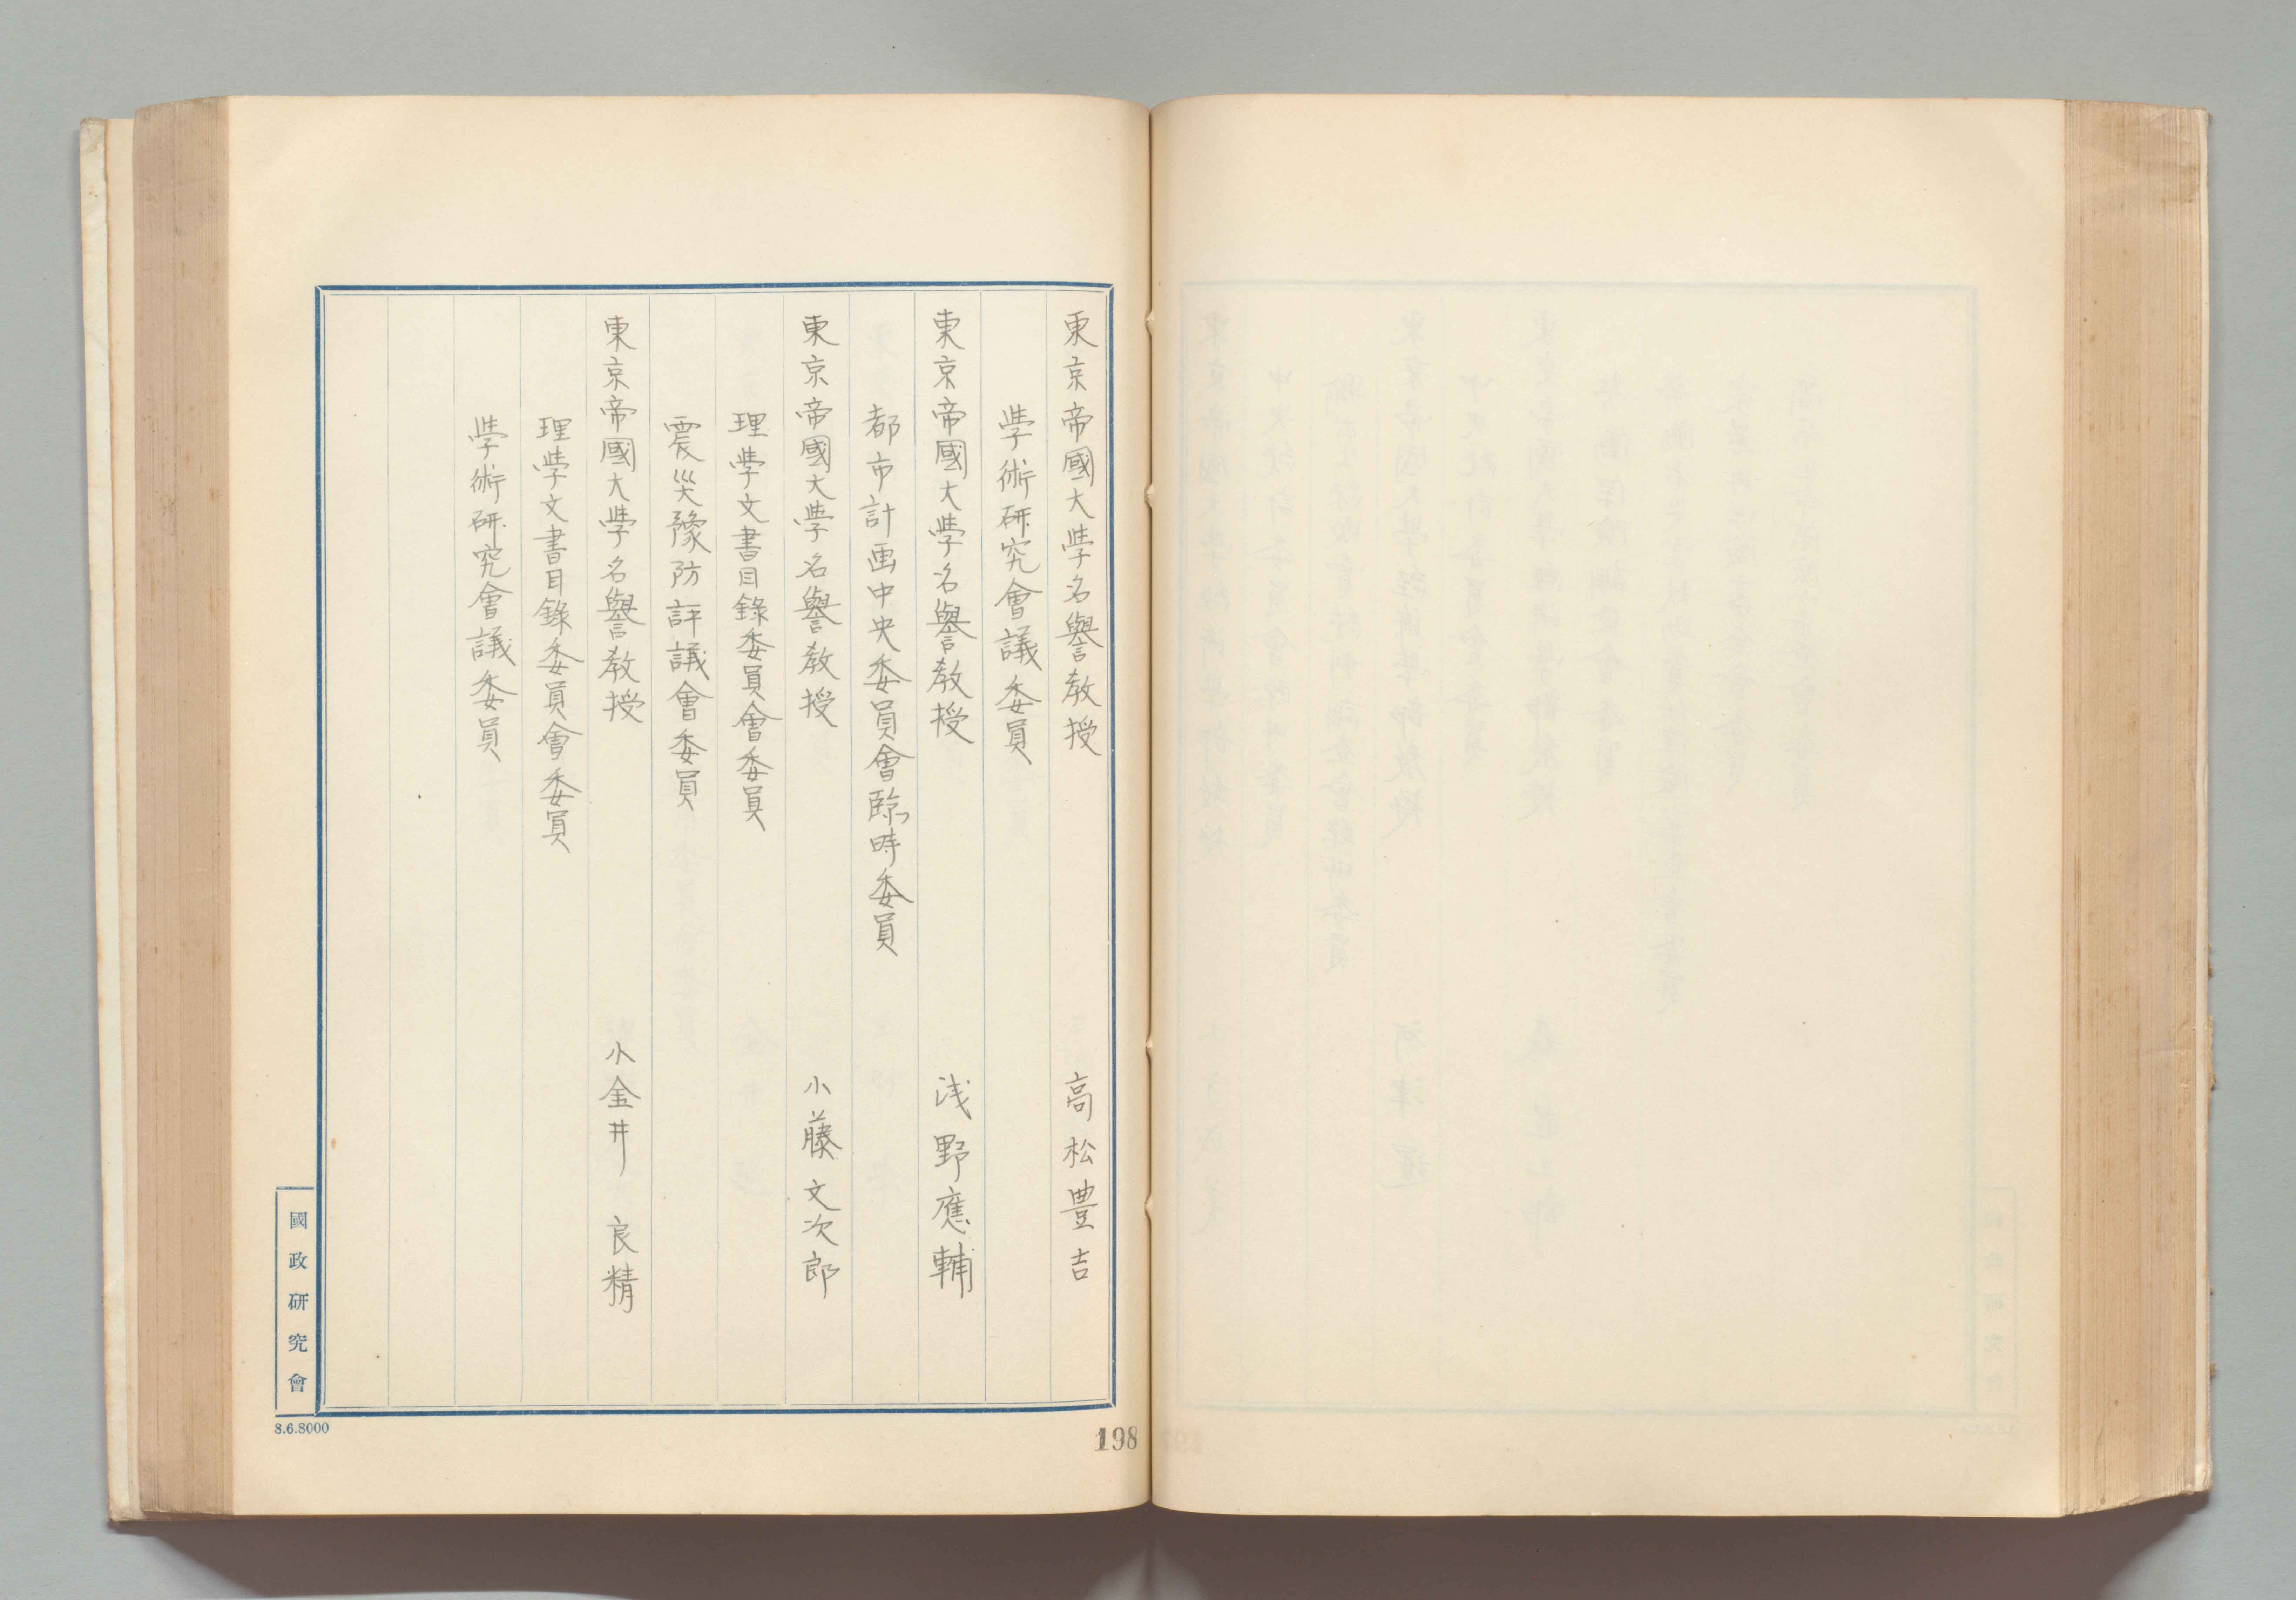 東京帝國大學名譽教授　高松豊吉
學術研究會議委員
東京帝國大學名譽教授　浅野應輔
都市計画中央委員會臨時委員
東京帝國大學名譽教授　小藤文次郎
理學文書目錄委員會委員
震災豫防評議會委員
東京帝國大學名譽教授　小金井良精
理學文書目錄委員會委員
學術研究會議委員
國政研究會
8.6.8000
198